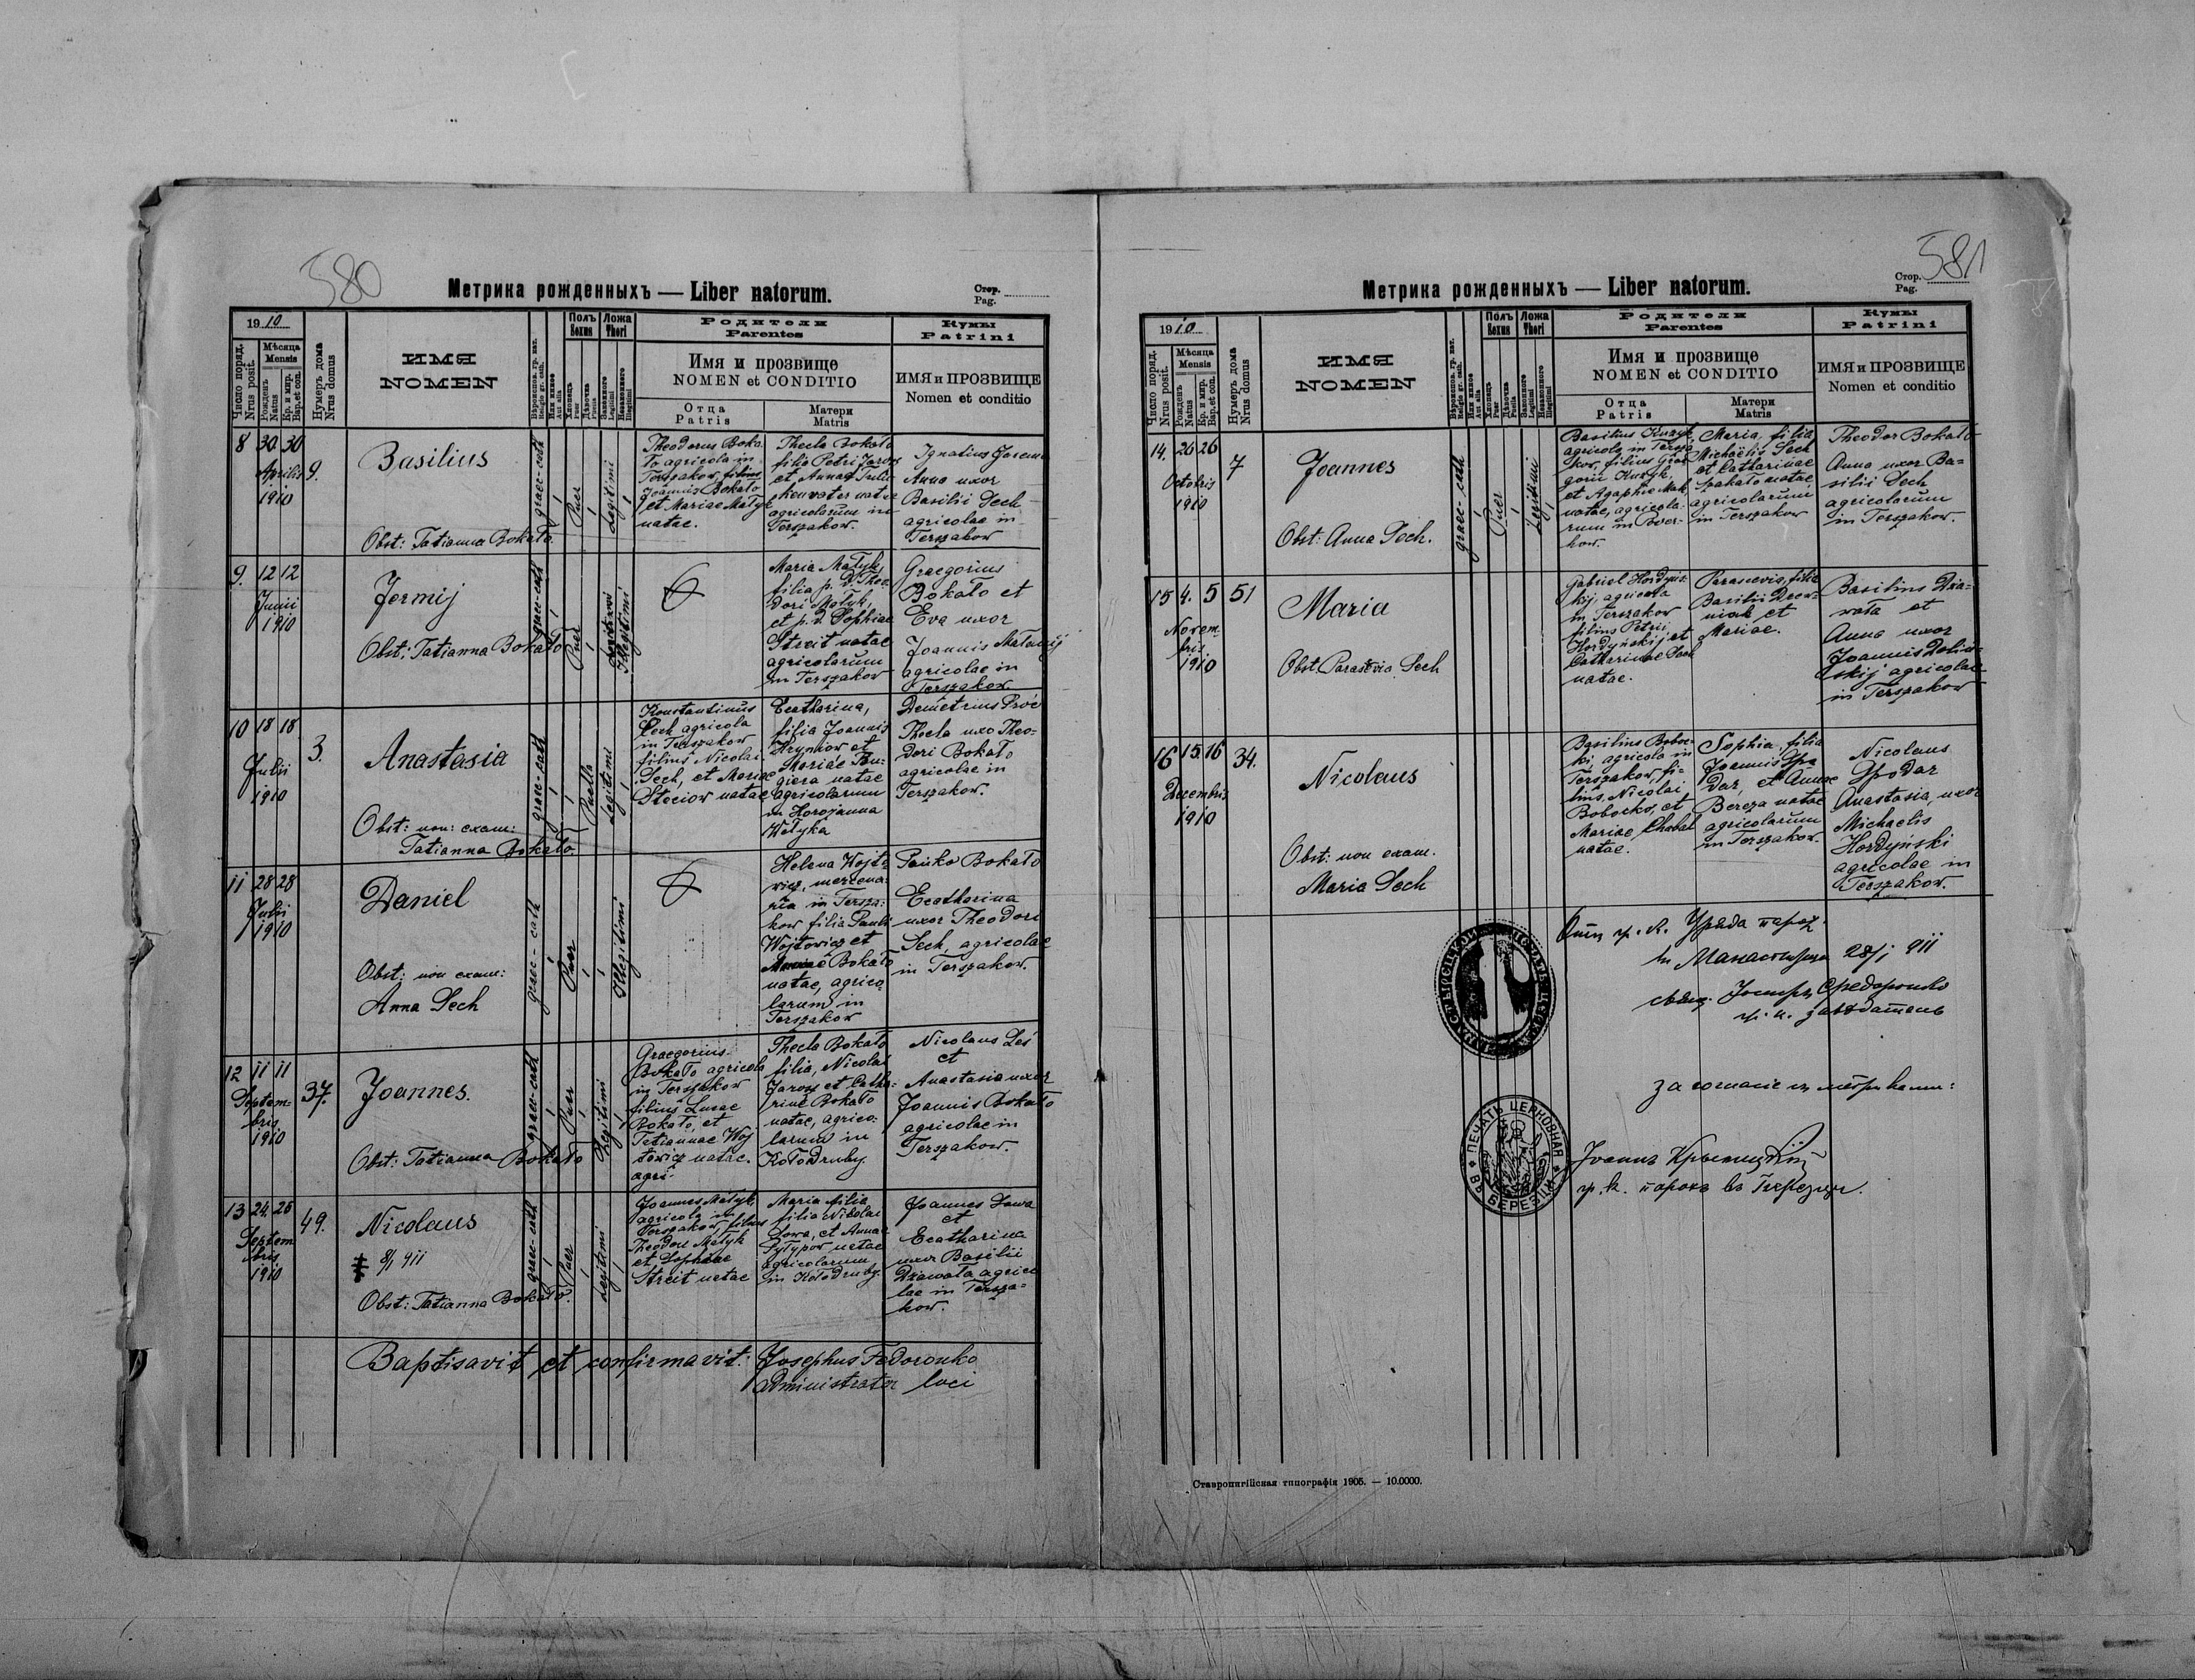 580
Метрика рожденныхъ — Liber natorum.
Стор.
Pag.
1910
Число поряд.
Nrus posit.
Мѣсяца
Mensis
Рожденъ
Natus
Кр. и мир.
Bap. et con.
Нумеръ дома
Nrus domus
ИМЯ
NOMEN
Вѣроиспов. гр. кат.
Religio gr. cath.
Или иное
Aut alia
Полъ
Sexus
Хлопецъ
Puer
Дѣвочка
Puella
Ложа
Thori
Законного
Legitimi
Незаконного
Illegitimi
Родители
Parentes
Имя и прозвище
NOMEN et CONDITIO
Отца
Patris
Матери
Matris
Кумы
Patrini
ИМЯ и ПРОЗВИЩЕ
Nomen et conditio
8 30 30
Aprilis
1910
9.
Basilius
Obst: Tatianna Bokało.
graec-cath
Puer
Legitimi
Theodorus Boka-
ło agricola in
Terszakow, filius
Joannis Bokało
et Mariae Matyk
natae.
Thecla Bokało
filia Petri Jarosz
et Annae
natae
agricolarum in
Terszakow.
Ignatius
Anna uxor
Basilii Sech
agricolae in
Terszakow
9. 12 12
Junii
1910
Jermij
Obst: Tatianna Bokało
graec-cath
Puer
Illegitimi
Maria Matyk,
filia p. d. Theo-
dori Matyk,
et p. d. Sophiae
Streit natae
agricolarum
in Terszakow
Graegorius
Bokało et
Eva uxor
Joannis
agricolae in
Terszakow.
10 18 18
Julii
1910
3.
Anastasia
Obst: non: exam:
Tatianna Bokało.
graec-cath
Puella
Legitimi
Konstantinus
Sech agricola
in Terszakow
filius Nicolai
Sech, et Mariae
Steciow natae
Ecatharina,
filia Joannis
Hryniow et
Mariae
natae
agricolarum
in Horożanna
Wełyka
Demetrius Proć
Thecla uxo Theo-
dori Bokało
agricolae in
Terszakow.
11 28 28
Julii
1910
Daniel
Obst: non exam:
Anna Sech
graec-cath
Puer
Illegitimi
Helena Wojto-
wicz, mercena-
ria in Tersza-
kow filia Pauli
Wojtowicz et
Mariae Bokało
natae, agrico-
larum in
Terszakow
Pańko Bokało
Ecatharina
uxor Theodori
Sech, agricolae
in Terszakow.
12 11 11
Septem-
bris
1910
37.
Joannes.
Obst: Tatianna Bokało
graec-cath
Puer
Legitimi
Graegorius
Bokało agricola
in Terszakow
filius Lucae
Bokało, et
Tatiannae Woj-
towicz natae.
agri-
Thecla Bokało
filia, Nicolai
Jarosz et Catha-
rinae Bokało
natae, agrico-
larum in
Kołodruby.
Nicolaus Leś
et
Anastasia uxor
Joannis Bokało
agricolae in
Terszakow.
13 24 26
Septem
bris
1910
49.
Nicolaus
8/1 911
Obst: Tatianna Bokało.
graec-cath
Puer
Legitimi
Joannes Matyk,
agricola in
Terszakow, filius
Theodori Matyk
et Sophiae
Streit natae
Maria filia
filia Nicolai
Sowa, et Annae
Pyłypow natae
agricolarum
in Kołodruby.
Joannes Sowa
et
Ecatharina
uxor Basilii
Dżawała agrico
lae in Tersza-
kow.
Baptisavit et confirmavit: Josephus Fedoronko
administrator loci
581
Метрика рожденныхъ — Liber natorum.
Стор.
Pag.
1910
Число поряд.
Nrus posit.
Мѣсяца
Mensis
Рожденъ
Natus
Кр. и мир.
Bap. et con.
Нумеръ дома
Nrus domus
ИМЯ
NOMEN
Вѣроиспов. гр. кат.
Religio gr. cath.
Или иное
Aut alia
Полъ
Sexus
Хлопецъ
Puer
Дѣвочка
Puella
Ложа
Thori
Законного
Legitimi
Незаконного
Illegitimi
Родители
Parentes
Имя и прозвище
NOMEN et CONDITIO
Отца
Patris
Матери
Matris
Кумы
Patrini
ИМЯ и ПРОЗВИЩЕ
Nomen et conditio
14. 26 26
Octobris
1910
7
Joannes
Obst: Anna Sech.
graec-cath
Puer
Legitimi
Basilius
agricola in Tersza
kow, filius Grae-
gorii
et Agaphiae
natae, agricola-
rum in
Maria, filia
Michaëlis Sech
et Catharinae
natae,
agricolarum
in Terszakow
Theodor Bokało
Anna uxor Ba-
silii Sech
agricolarum
in Terszakow.
15 4. 5 51
Novem-
bris
1910
Maria
Obst. Parascevia Sech
Gabriel Hordyńs-
kij, agricola
in Terszakow
filius Petri
Hordyńskij et
Catharinae Sech
natae.
Parascevia, filia
Basilii
et
Mariae.
Basilius Dża-
wała et
Anna uxor
Joannis
agricolae
in Terszakow
16 15 16 34.
Decembris
1910
Nicolaus
Obst: non exam.
Maria Sech
Basilius Boboc-
ki, agricola in
Terszakow, fi-
lius, Nicolai
Bobocki, et
Mariae Chabal
natae.
Sophia, filia
Joannis Spo
dar, et Annae
Bereza natae
agricolarum
in Terszakow.
Nicolaus
Spodar
Anastasia, uxor
Michaelis
Hordyński
agricolae in
Terszakow.
гр. к. Уряда парох.
28/1 911
Федоронько
гр. к. завѣдатель
за согласіе съ метриками:
ПЕЧАТЬ ЦЕРКОВНАЯ ВЪ БЕРЕЗЦИ
Іоаннъ
гр. к. парохъ въ
Ставропигійская типографія 1905. — 10.0000.